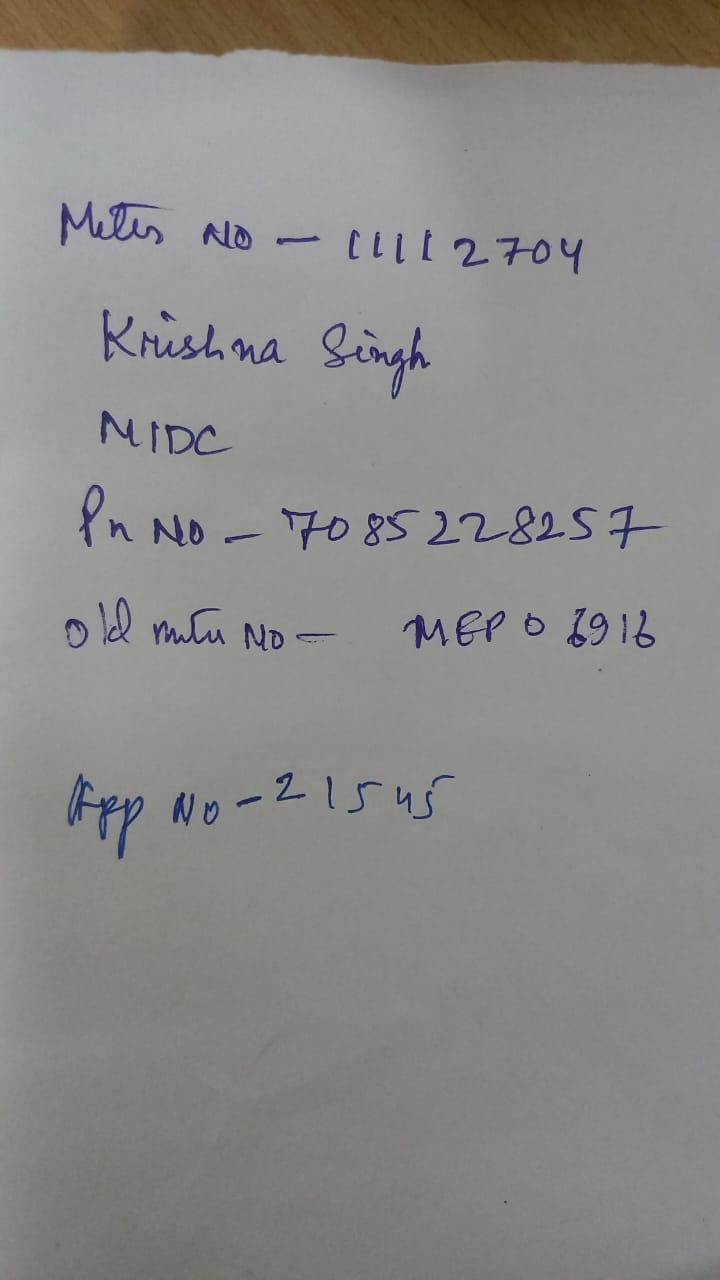 Meter No - 11112704
Krishna Singh
NIDC
Pn No - 7085228257
old meter No - MEP 0 6916
App No - 21545